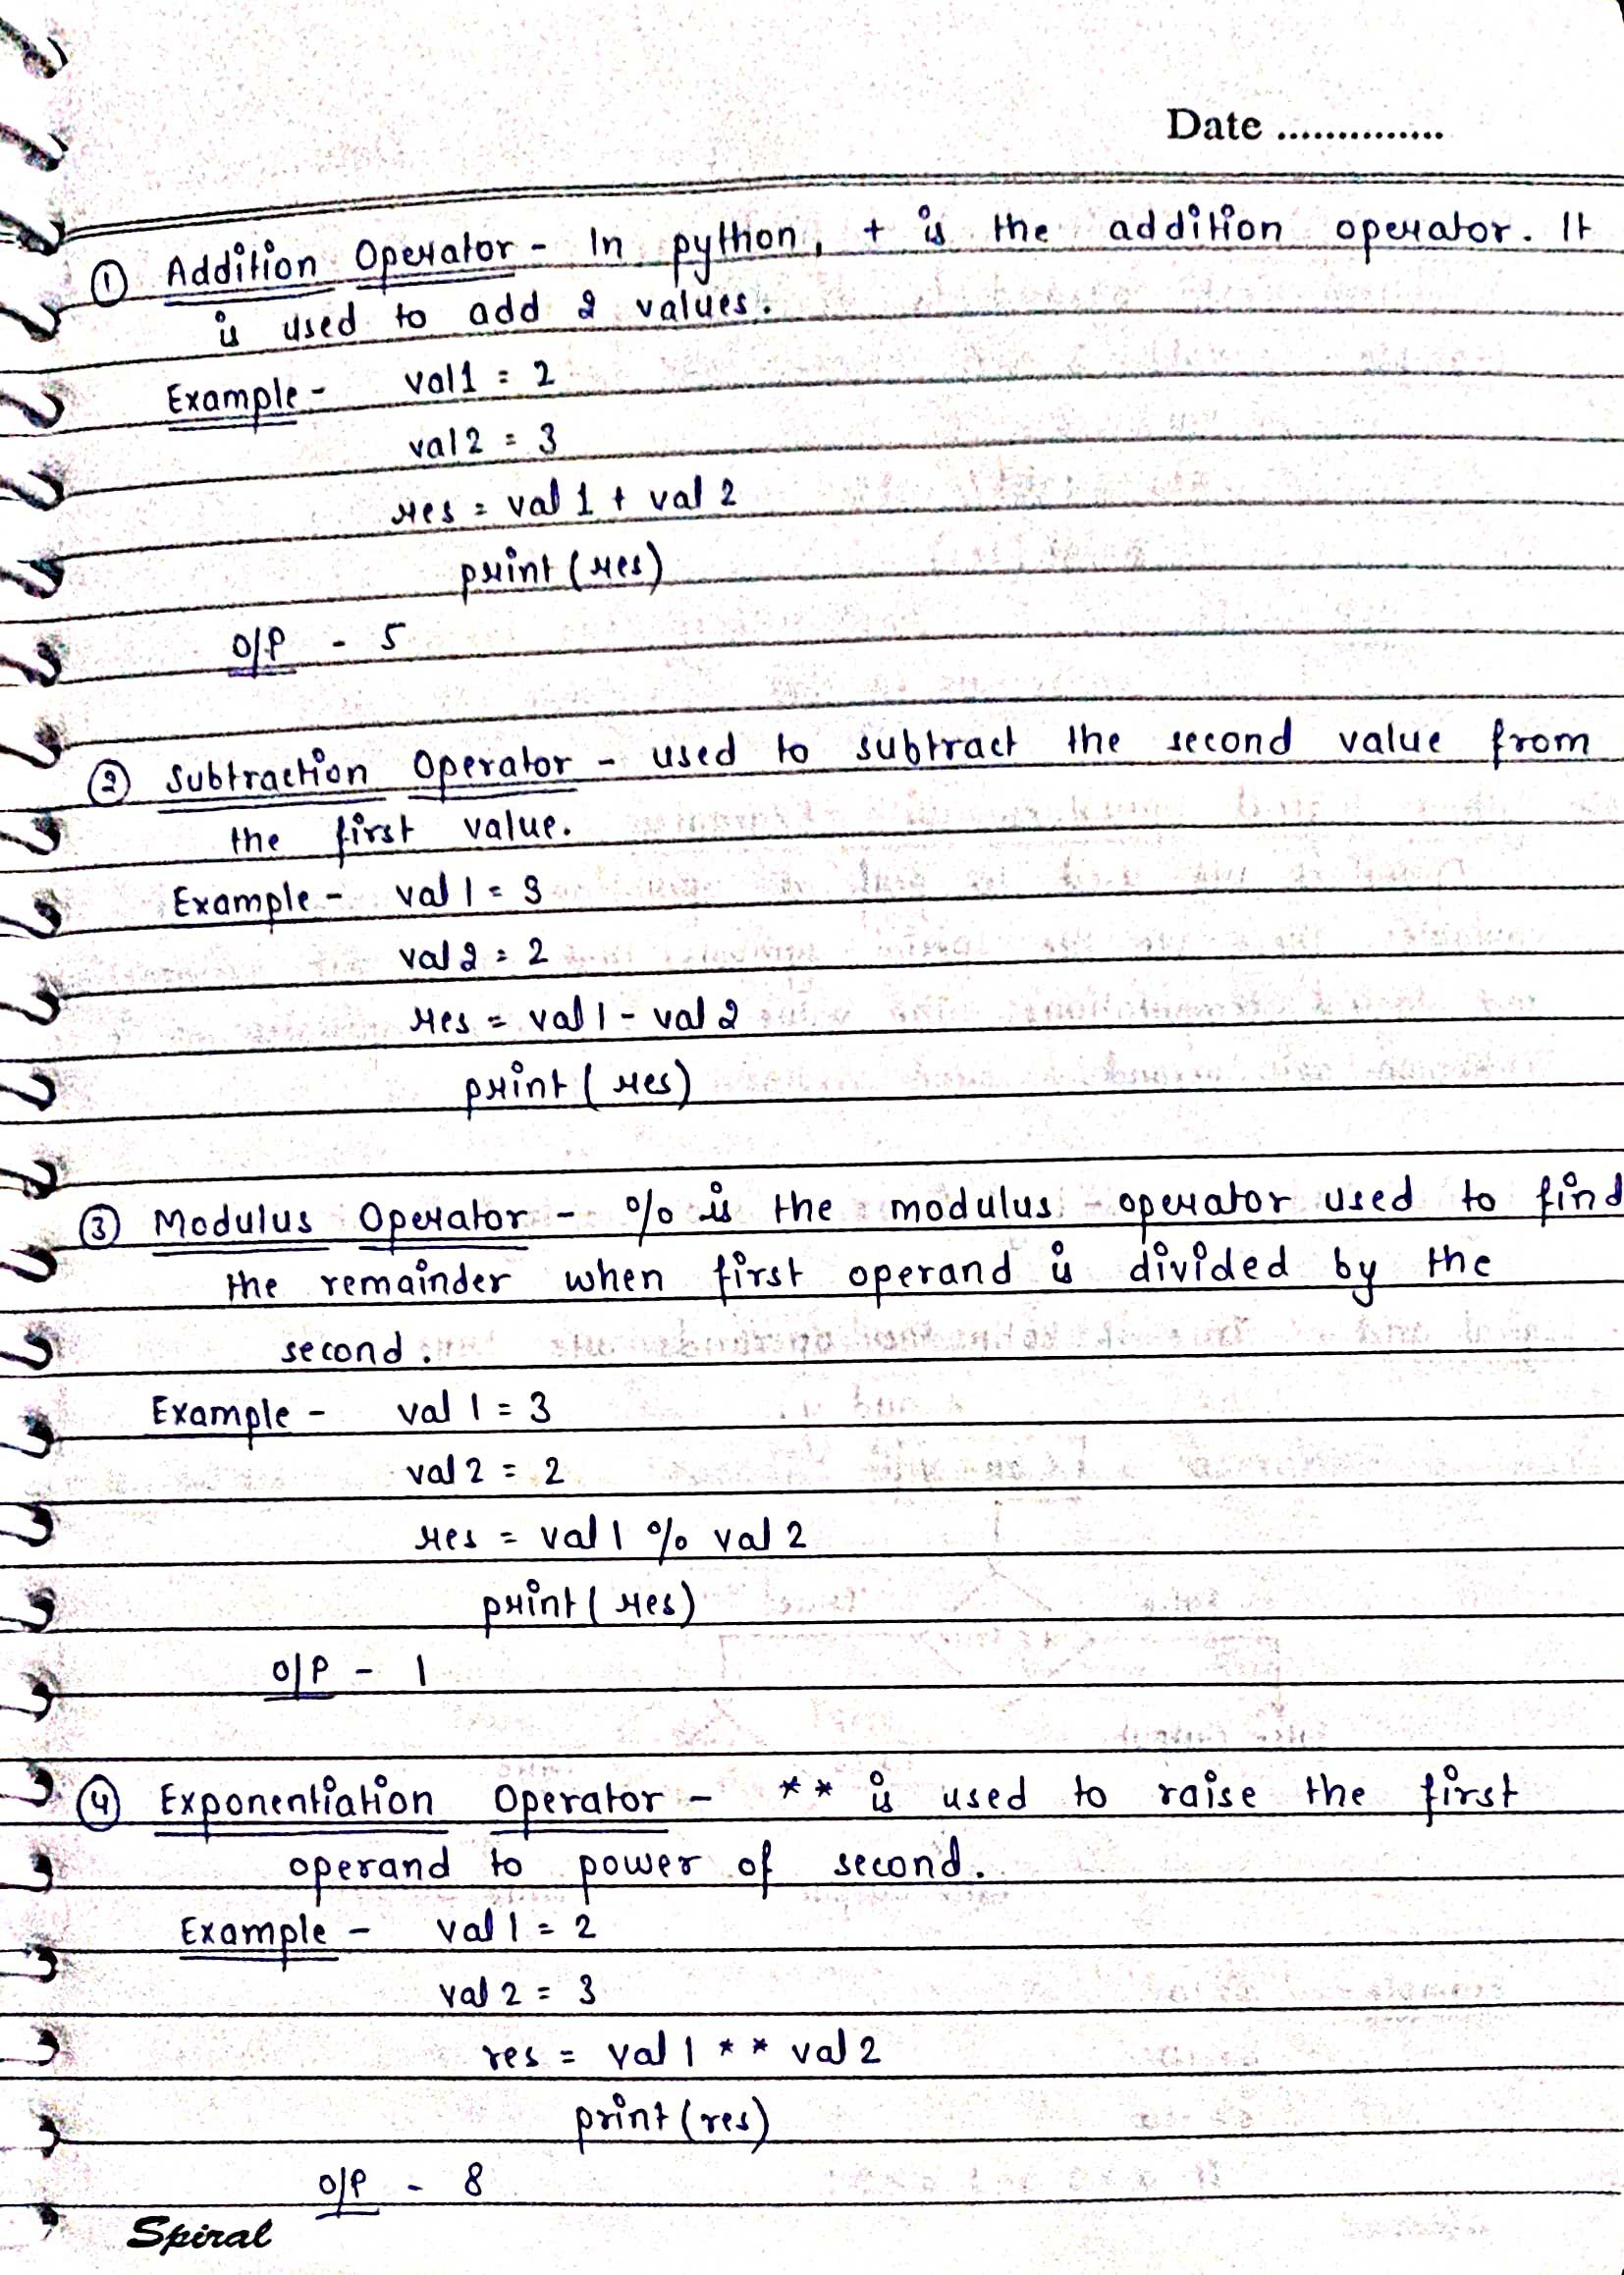 Date ..............
① Addition Operator - In python, + is the addition operator. It
is used to add 2 values.
Example - val1 = 2
val2 = 3
res = val 1 + val 2
print (res)
O/P - 5
② Subtraction Operator - used to subtract the second value from
the first value.
Example - val 1 = 3
val 2 = 2
res = val 1 - val 2
print ( res)
③ Modulus Operator - % is the modulus operator used to find
the remainder when first operand is divided by the
second.
Example - val 1 = 3
val 2 = 2
res = val 1 % val 2
print ( res)
O/P - 1
④ Exponentiation Operator - ** is used to raise the first
operand to power of second.
Example - val 1 = 2
val 2 = 3
res = val 1 ** val 2
print (res)
O/P - 8
Spiral